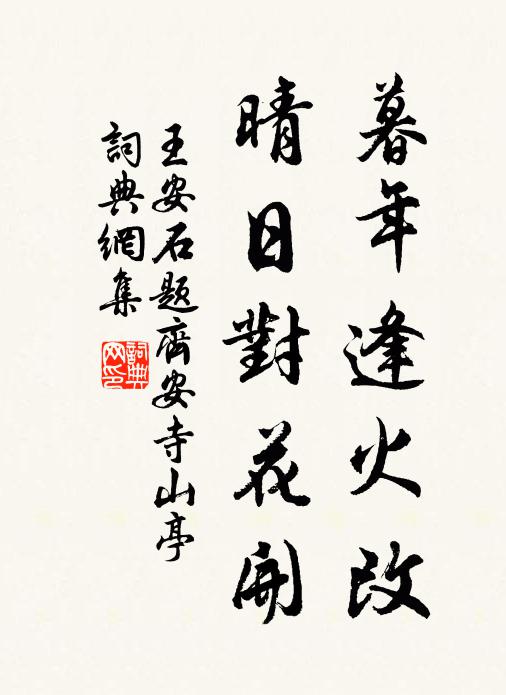 暮年逢火改
晴日對花開
王安石題齊安寺山亭
詞典網集
詞典
网印